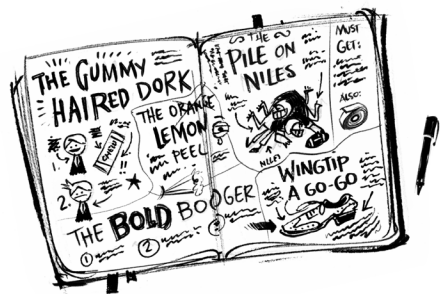 THE GUMMY
HAIRED DORK
1.
CHEW!
!!
2.
THE ORANGE
LEMON
PEEL
THE BOLD BOOGER
1
2
3
THE
PILE ON
NILES
NILES
MUST
GET:
ALSO:
WINGTIP
A GO-GO